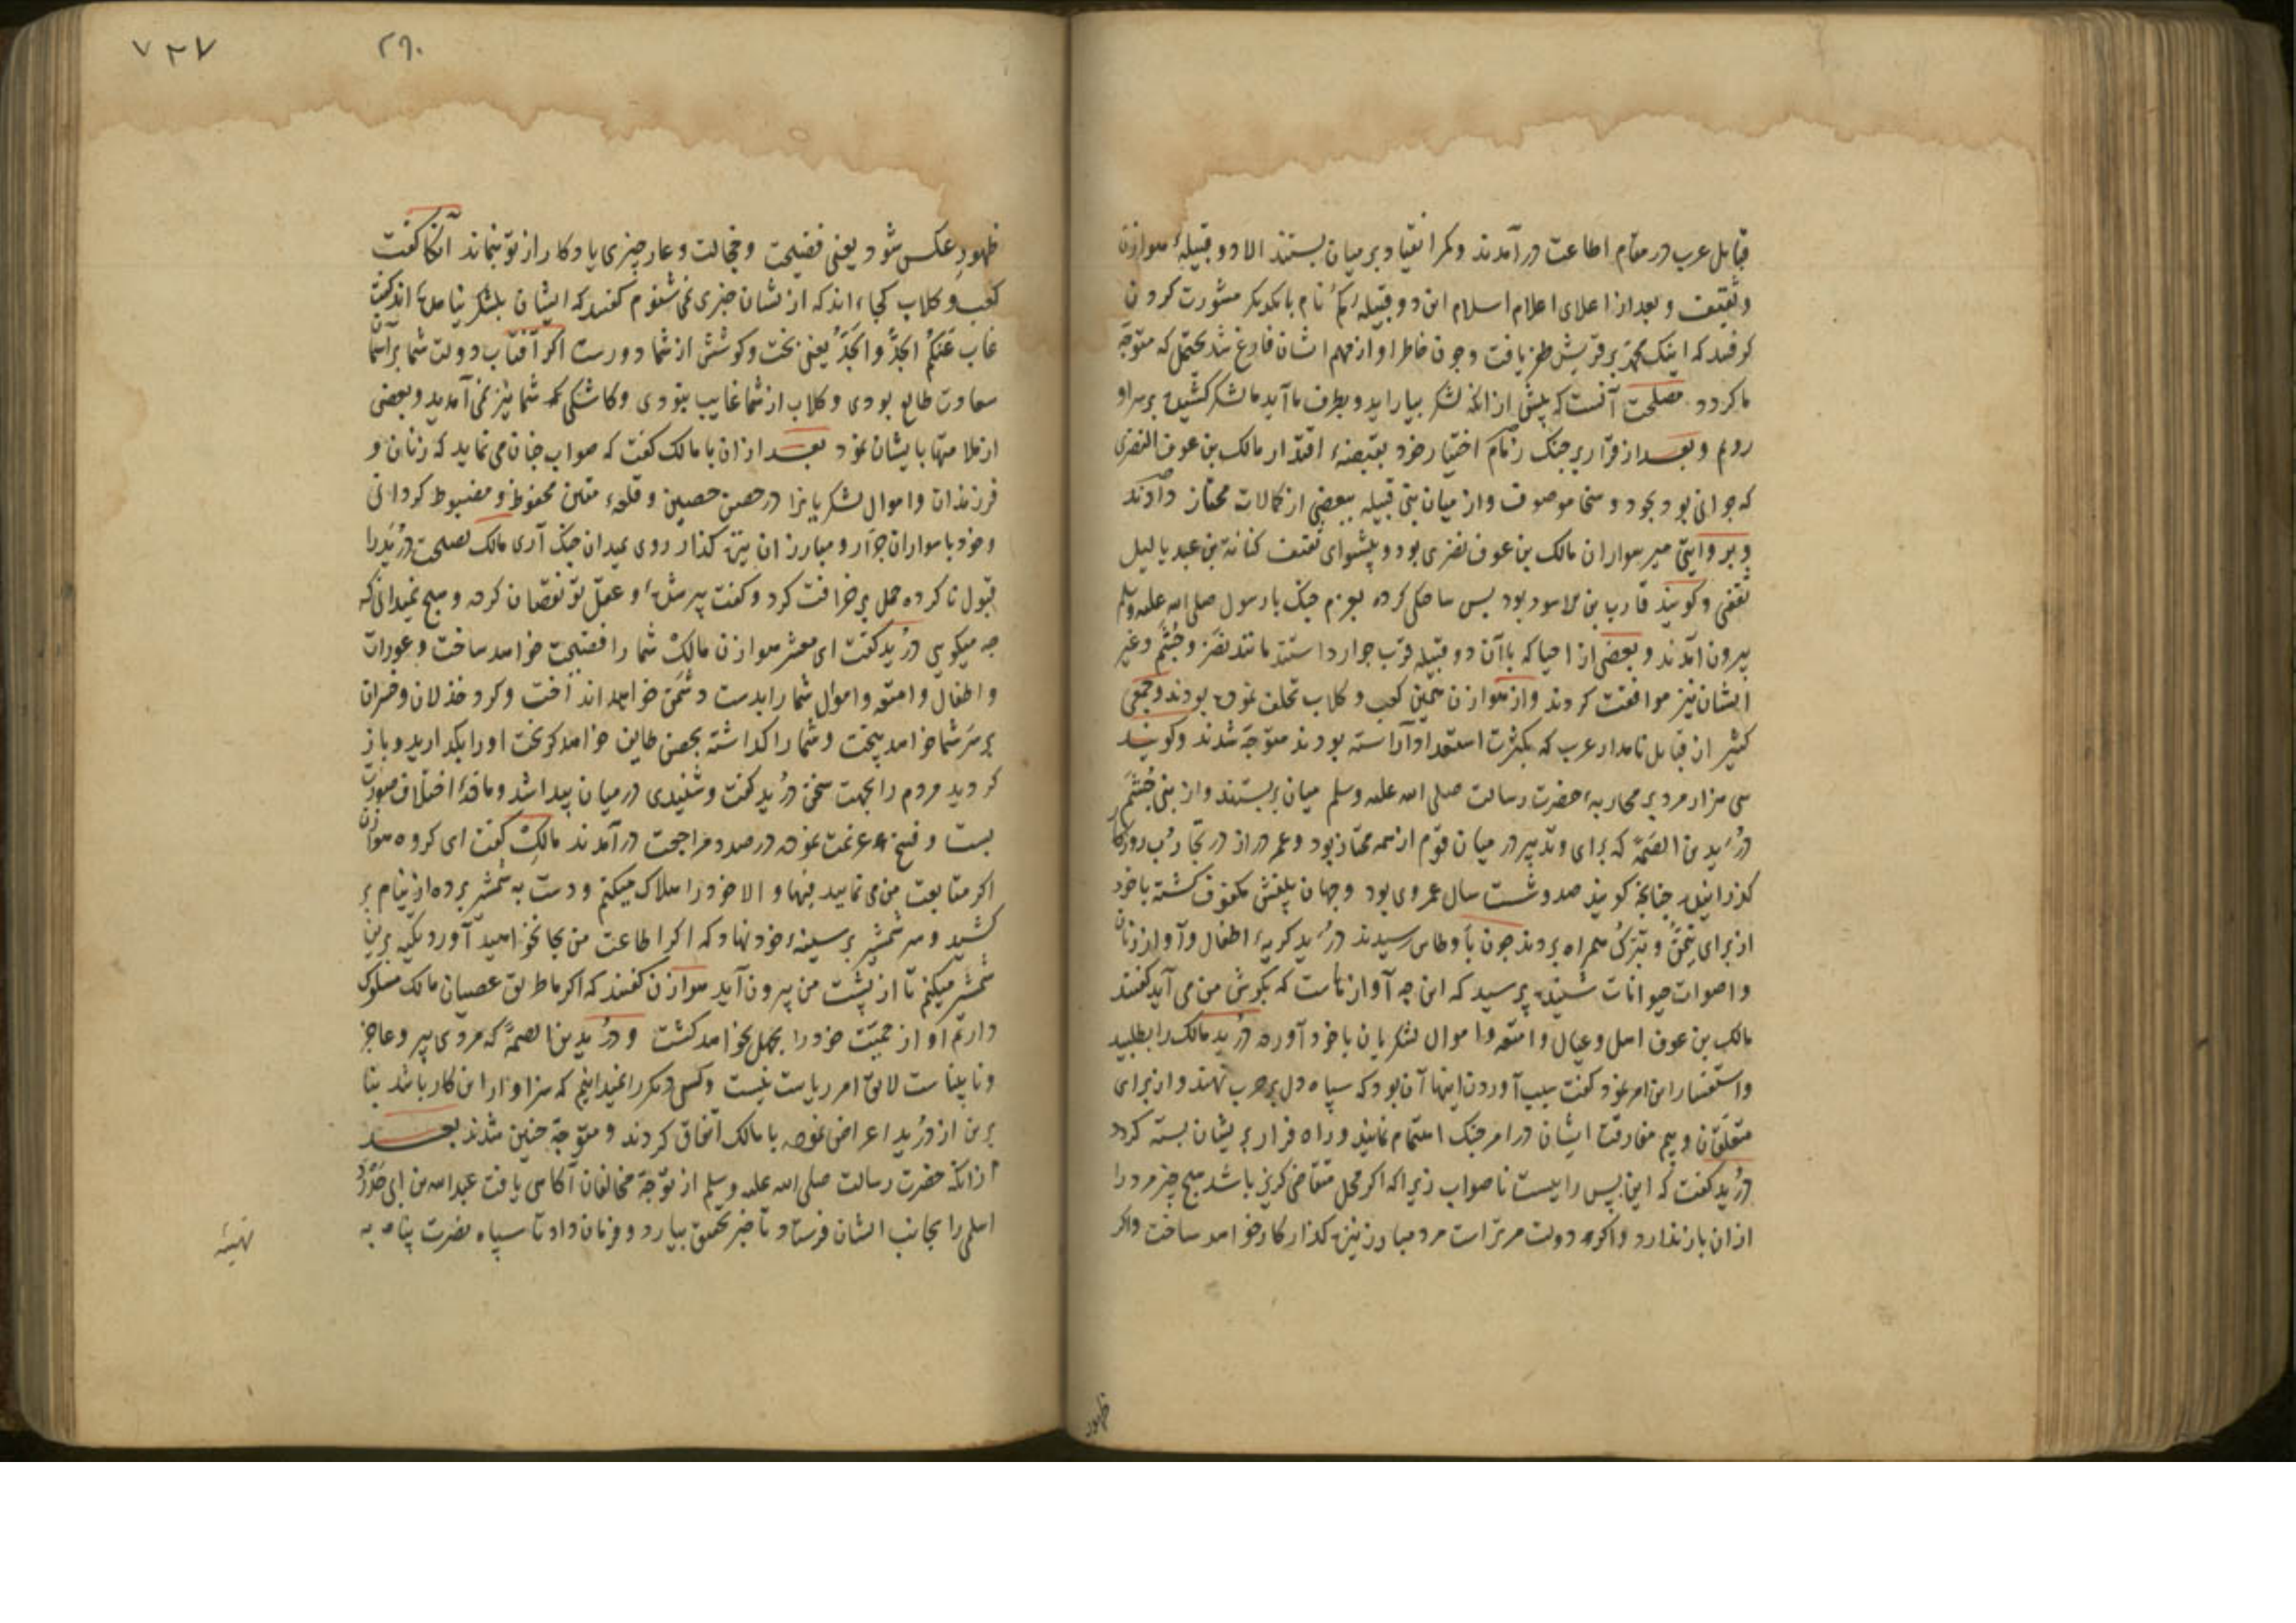 قبایل عرب در مقام اطاعت درآمدند وکمر انقیاد بر میان بستند الا دو قبیلهٔ هوازن
وثقیف و بعد از اعلای اعلام اسلام این دو قبیله بایکدیکر مشورت کردن
کرفتند که اینک محمد بر قریش ظفر یافت وجون خاطر او از مهم ایشان فارغ شد یحتمل که متوجه
ما کردد مصلحت آنست که پیش از انکه لشکر بیاراید و بطرف ما آید ما لشکر کشیده بر سر او
رویم و بعد از قرار بر جنک زمام اختیار خود بقبضهٔ اقتدار مالک بن عوف النضری
که جوانی بود بجود و سخا موصوف واز میان بنی قبیله ببعضی از کمالات ممتاز دادند
و بر وایتی میر سواران مالک بن عوف نضری بود و پیشوای ثقیف کنانة بن عبد یالیل
ثقفی و کویند قارب بن الاسود بود پس ساختکی کرده بعزم جنک با رسول صلی الله علیه وسلم
بیرون آمدند و بعضی از احیا که با آن دو قبیله قرب جوار داشتند مانند نضر و جشم و غیر
ایشان نیز موافقت کردند واز هوازن همین کعب و کلاب تخلف نموده بودند و جمعی
کثیر از قبایل نامدار عرب که بکثرت استعداد آراسته بودند متوجه شدند و کویند
سی هزار مرد بر محاربهٔ حضرت رسالت صلی الله علیه وسلم میان بربستند واز بنی جشم
درید بن الصمه که برای و تدبیر در میان قوم از همه ممتاز بود و عمر دراز در تجارب روزکار
کذرانیده جنانجه کویند صد و شست سال عمر وی بود و جهان بینش مکفوف کشته با خود
از برای تیمن و تبرک همراه بردند جون باوطاس رسیدند درید کریهٔ اطفال و آواز زنان
و اصوات حیوانات شنیده پرسید که این جه آوازهاست که بکوش من می آید کفتند
مالک بن عوف اهل و عیال و امتعه و اموال لشکریان با خود آورده درید مالک را بطلبید
و استفسار این امر نمود کفت سبب آوردن اینها آن بود که سپاه دل بر حرب نهند و از برای
متعلقان و بیم مفارقت ایشان در امر جنک اهتمام نمایند و راه فرار بر یشان بسته کردد
درید کفت که این پس راییست ناصواب زیرا که اکر محل متقاضی کریز باشد هیچ جیز مرد را
از ان باز ندارد و اکر دولت مر تراست مرد مبارز نیزه کذار کار خواهد ساخت و اکر
ظهور
۷۳۷
۲۹۰
ظهور عکس شود یعنی فضیحت و خجالت و عار جیزی یادکار از تو بنماند آنکا کفت
کعب و کلاب کجااند که از نشان جیزی نمی شنوم کفتند که ایشان بلشکر نیامده اند کفت
غاب عنکم الجد والجد یعنی بخت و کوشش از شما دورست اکر آفتاب دولت شما بر آسمان
سعادت طالع بودی و کلاب از شما غایب نبودی و کاشکی که شما نیز نمی آمدید و بعضی
از ملامتها با یشان نمود بعد از ان با مالک کفت که صواب جنان می نماید که زنان و
فرزندان و اموال لشکریانرا در حصن حصین و قلعهٔ متین محفوظ و مضبوط کردانی
وخود با سواران جرار و مبارزان نیزه کذار روی بمیدان جنک آری مالک نصیحت درید را
قبول ناکرده حمل بر خرافت کرد و کفت پیر شدهٔ و عقل تو نقصان کرده و هیچ نمیدانی که
جه میکویی درید کفت ای معشر هوازن مالک شما را فضیحت خواهد ساخت و عورات
و اطفال و امتعه و اموال شما را بدست دشمن خواهد انداخت و کرد خذلان و خسران
بر سر شما خواهد بیخت و شما را کذاشته بحصن طایف خواهد کریخت او را بکذارید و باز
کردید مردم را بجهت سخن درید کفت و شنیدی در میان پیدا شد و مادهٔ اختلاف صورت
بست و فسخ عزیمت نموده در صدد مراجعت درآمدند مالک کفت ای کروه هوازن
اکر متابعت من می نمایید فبها و الا خود را هلاک میکنم و دست به شمشیر برده از نیام بر
کشید و سر شمشیر بر سینهٔ خود نهاد که اکر اطاعت من بجا نخواهید آورد تکیه برین
شمشیر میکنم تا از پشت من بیرون آید هوازن کفتند که اکر ما طریق عصیان مالک مسلوک
داریم او از حمیت خود را بجهل بخواهد کشت و درید بن الصمه که مردی پیر و عاجز
و نابیناست لایق امر ریاست نیست و کسی دیکر را نمیدانیم که سزاوار این کار باشد بنا
برین از درید اعراض نموده با مالک اتفاق کردند و متوجه حنین شدند بعد
از انکه حضرت رسالت صلی الله علیه وسلم از توجه مخالفان آکاهی یافت عبد الله بن ابی حدرد
اسلمی را بجانب ایشان فرستاد تا خبر تحقیق بیارد و فرمان داد تا سپاه نصرت پناه به
تهیئه